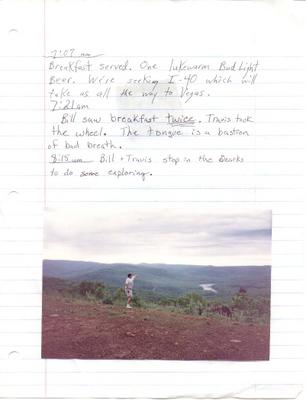 7:07 am
Breakfast served. One lukewarm Bud Light
Beer. We're seeking I-40 which will
take us all the way to Vegas.
7:21am
Bill saw breakfast twice. Travis took
the wheel. The tongue is a bastion
of bad breath.
8:15 am Bill + Travis stop in the Ozarks
to do some exploring.